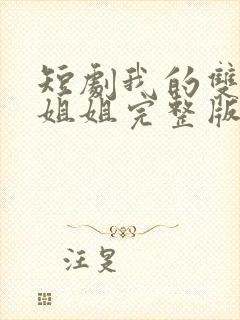 短劇我的雙
姐姐完整版
汪昱